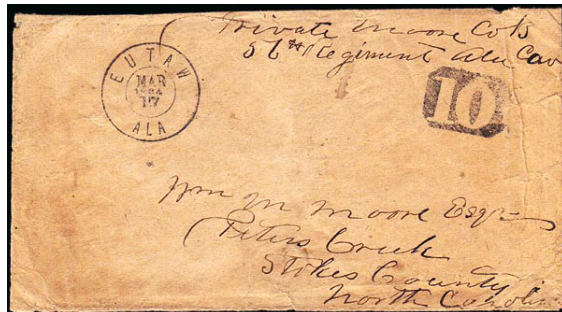 Private Moore Co B
56th Regiment Ala Cav
EUTAW
MAR
17
ALA
10
Wm M Moore Esqr
Peters Creek
Stokes County
North Carolin